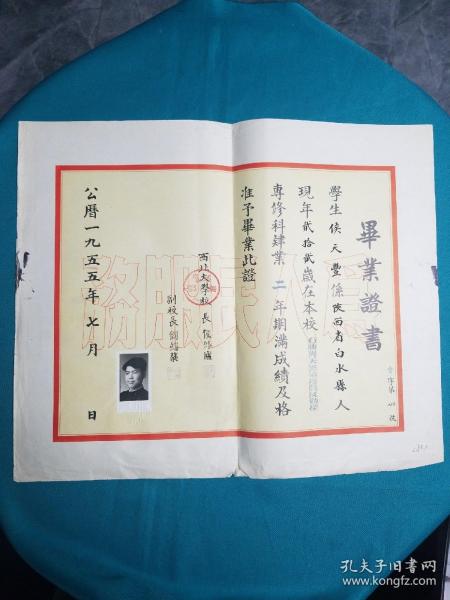 畢業證書
學生侯天豐係陝西省白水縣人
現年貳拾貳歲在本校
專修科肄業二年期滿成績及格
准予畢業此證
西北大學校長侯外廬
副校長劉端棻
公曆一九五五年七月 日
務服民
孔夫子旧书网
www.kongfz.com